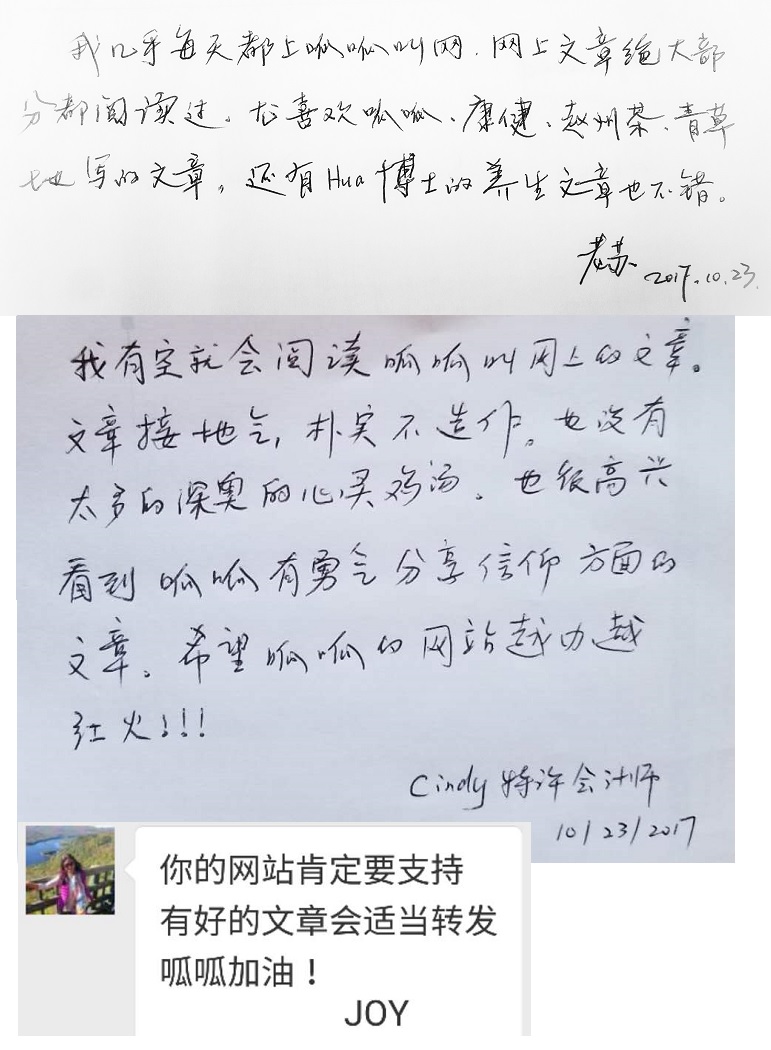 我几乎每天都上呱呱叫网，网上文章绝大部
分都阅读过。尤喜欢呱呱、康健、赵州茶、青草
地写的文章，还有Hua博士的养生文章也不错。
老苏
2017.10.23.
我有空就会阅读呱呱叫网上的文章。
文章接地气，朴实不造作。也没有
太多的深奥的心灵鸡汤。也很高兴
看到呱呱有勇气分享信仰方面的
文章。希望呱呱的网站越办越
红火!!!
Cindy 特许会计师
10/23/2017
你的网站肯定要支持
有好的文章会适当转发
呱呱加油！
JOY